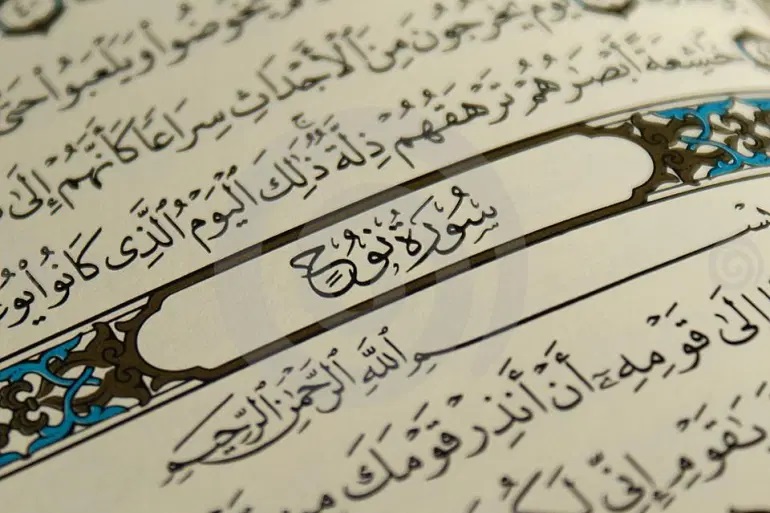 يَخُوضُوا۟ وَيَلْعَبُوا۟ حَتَّىٰ
يَوْمَ يَخْرُجُونَ مِنَ ٱلْأَجْدَاثِ سِرَاعًا كَأَنَّهُمْ إِلَىٰ
خَٰشِعَةً أَبْصَٰرُهُمْ تَرْهَقُهُمْ ذِلَّةٌ ذَٰلِكَ ٱلْيَوْمُ ٱلَّذِى كَانُوا۟
سُورَةُ نُوحٍ
بِسْمِ ٱللَّهِ ٱلرَّحْمَٰنِ ٱلرَّحِيمِ
إِلَىٰ قَوْمِهِۦٓ أَنْ أَنذِرْ قَوْمَكَ مِن
يَٰقَوْمِ إِنِّى لَكُمْ